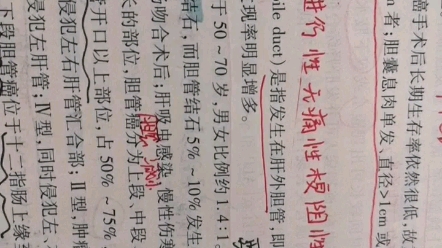 癌手术后长期生存率依然很低,故
者;胆囊息肉单发、直径>1cm或
进行性无痛性梗阻性
ile duct)是指发生在肝外胆管,即
现率明显增多。
于50~70岁,男女比例约1.4:1。
结石,而胆管结石5%~10%发生
吻合术后;肝吸虫感染、慢性伤寒
长的部位,胆管癌分为上段、中段
开口以上部位,占50%~75%
侵犯左右肝管汇合部;Ⅱ型,
侵犯左肝管;Ⅳ型,同时侵犯左、
下段胆管癌位于十二指肠上缘